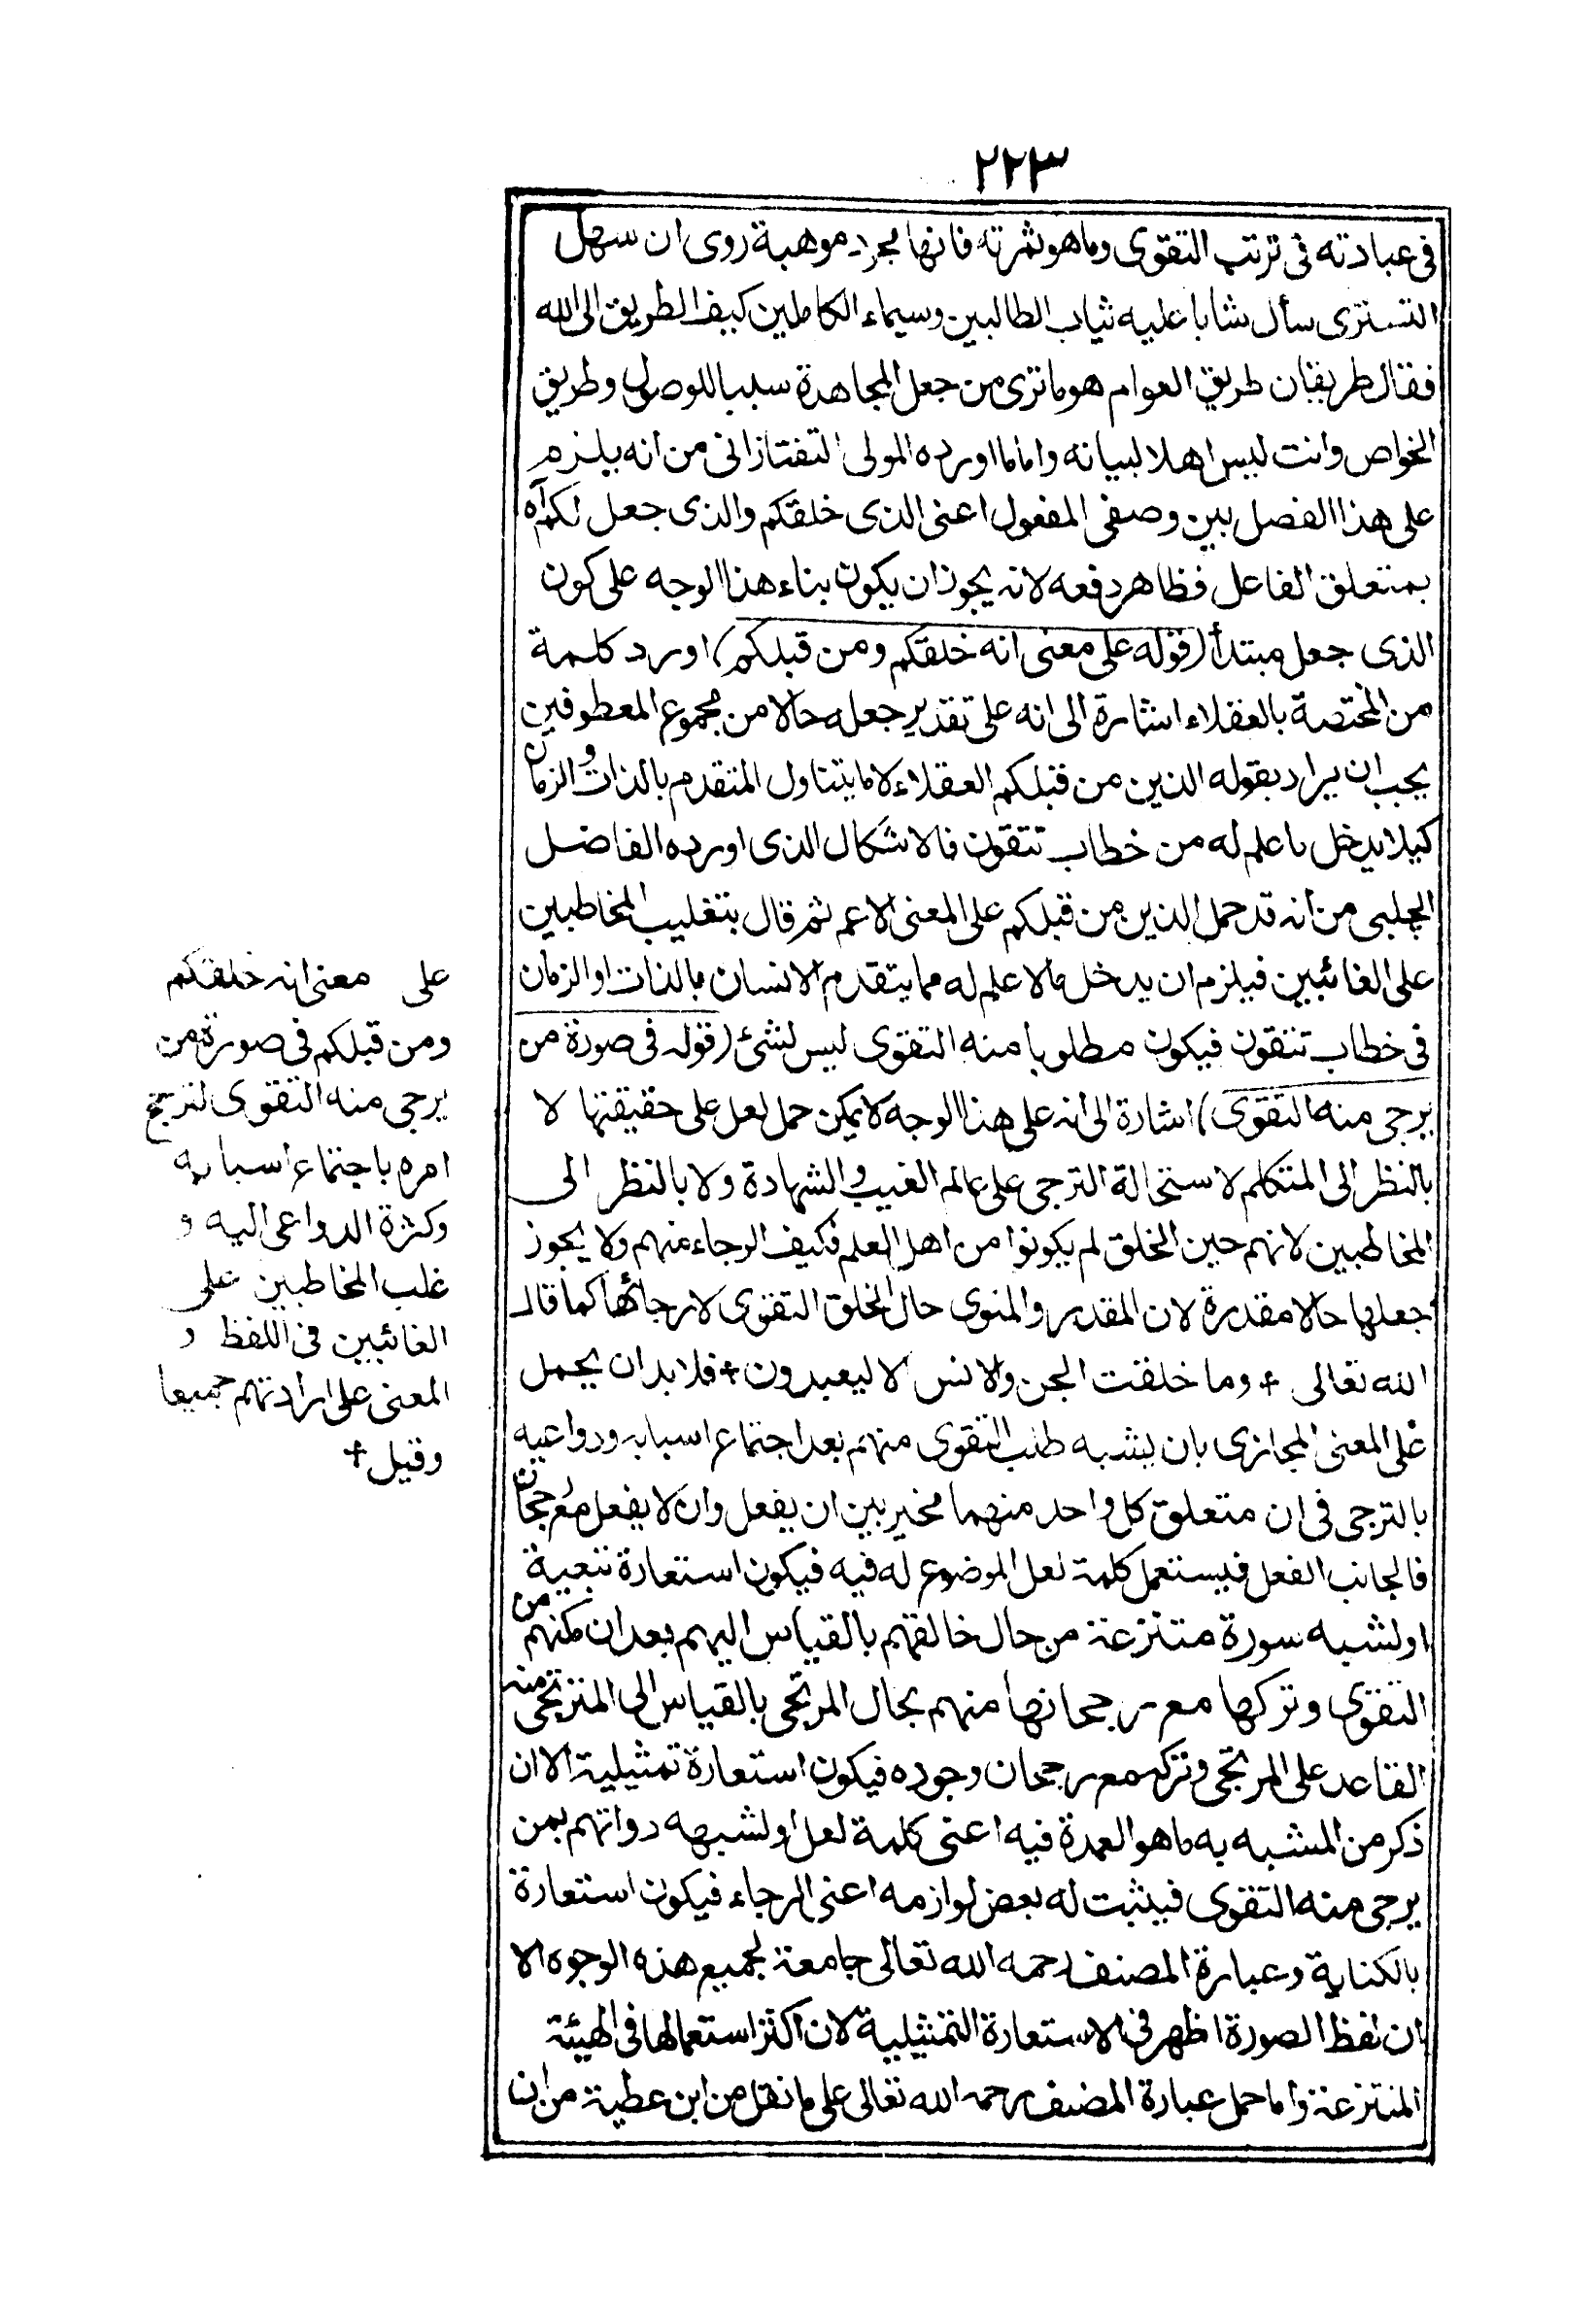 ٢٢٣
فى عبادته فى ترتب التقوى وما هو ثمرته فانها مجرد موهبة روى ان سهل
التسترى سأل شابا عليه ثياب الطالبين وسيماء الكاملين كيف الطريق الى الله
فقال طريقان طريق العوام هو ما ترى من جعل المجاهدة سببا للوصول وطريق
الخواص وانت ليس اهلا لبيانه واما ما اورده المولى التفتازانى من انه يلزم
على هذا الفصل بين وصفى المفعول اعنى الذى خلقكم والذى جعل لكم آه
بمتعلق الفاعل فظاهر دفعه لانه يجوز ان يكون بناء هذا الوجه على كون
الذى جعل مبتدأ (قوله على معنى انه خلقكم ومن قبلكم) اورد كلمة
من المختصة بالعقلاء اشارة الى انه على تقدير جعله حالا من مجموع المعطوفين
يجب ان يراد بقوله الذين من قبلكم العقلاء لا ما يتناول المتقدم بالذات والزمان
كيلا يدخل ما علم له من خطاب تتقون فالاشكال الذى اورده الفاضل
الچلبى من انه قد حمل الذين من قبلكم على المعنى الاعم ثم قال بتغليب المخاطبين
على الغائبين فيلزم ان يدخل ما لا علم له مما يتقدم الانسان بالذات او الزمان
فى خطاب تتقون فيكون مطلوبا منه التقوى ليس لشئ (قوله فى صورة من
يرجى منه التقوى) اشارة الى انه على هذا الوجه لا يمكن حمل لعل على حقيقتها لا
بالنظر الى المتكلم لاستحالة الترجى على عالم الغيب والشهادة ولا بالنظر الى
المخاطبين لانهم حين الخلق لم يكونوا من اهل العلم فكيف الرجاء منهم ولا يجوز
جعلها حالا مقدرة لان المقدر والمنوى حال الخلق التقوى لا رجائها كما قال
الله تعالى + وما خلقت الجن والانس الا ليعبدون + فلابد ان يحمل
على المعنى المجازى بان يشبه طلب التقوى منهم بعد اجتماع اسبابه ودواعيه
بالترجى فى ان متعلق كل واحد منهما مخير بين ان يفعل وان لا يفعل مع رجحان
فالجانب الفعل فيستعمل كلمة لعل الموضوع له فيه فيكون استعارة تبعية
او لشبه سورة منتزعة من حال خالقهم بالقياس اليهم بعد ان مكنهم من
التقوى وتركها مع رجحانها منهم بحال المرتجى بالقياس الى المترتجى منه
القاعد على المرتجى وتركه مع رجحان وجوده فيكون استعارة تمثيلية الا ان
ذكر من المشبه به ما هو العمدة فيه اعنى كلمة لعل او لشبهه دواتهم بمن
يرجى منه التقوى فيثبت له بعض لوازمه اعنى الرجاء فيكون استعارة
بالكناية وعبارة المصنف رحمه الله تعالى جامعة لجميع هذه الوجوه الا
ان لفظ الصورة اظهر فى الاستعارة التمثيلية لان اكثر استعمالها فى الهيئة
المنتزعة واما حمل عبارة المصنف رحمه الله تعالى على ما نقل من ابن عطية من ان
على معنى انه خلقكم
ومن قبلكم فى صورة من
يرجى منه التقوى لترجح
امره باجتماع اسبابه
وكثرة الدواعى اليه و
غلب المخاطبين على
الغائبين فى اللفظ و
المعنى على ارادتهم جميعا
وقيل +